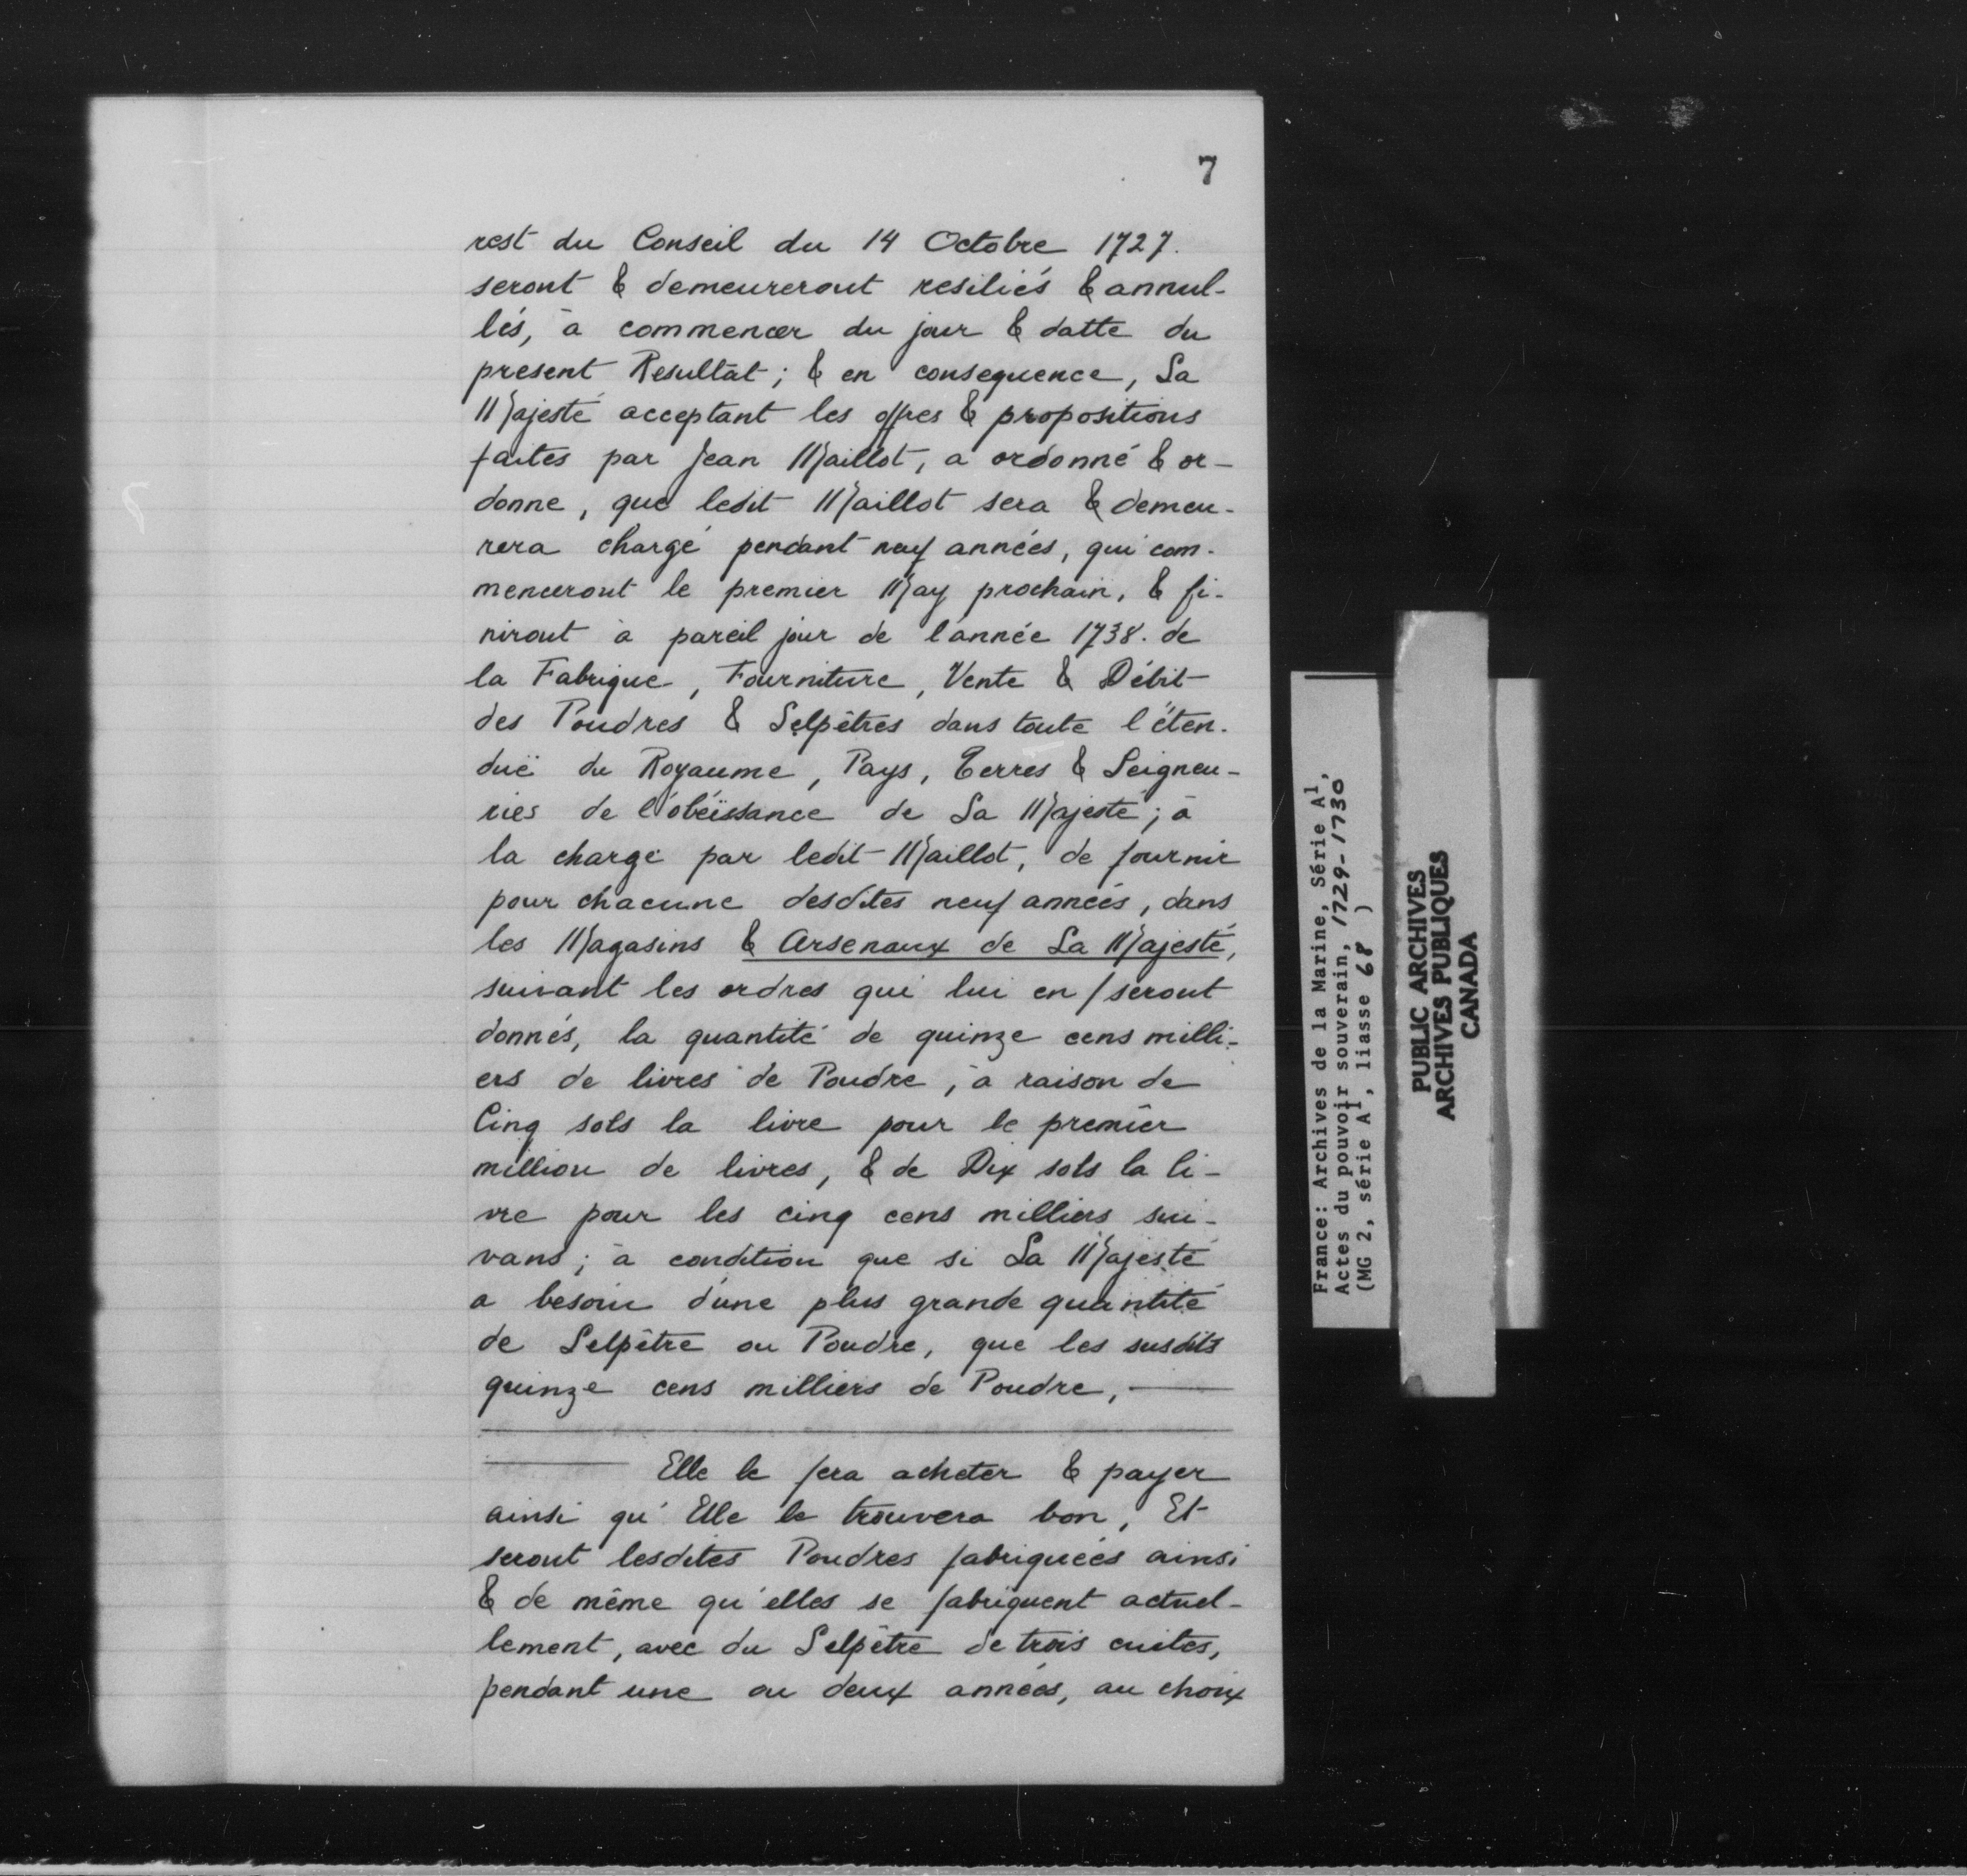 7
rest du Conseil du 14 Octobre 1727.
seront & demeureront resiliés & annul-
lés, à commencer du jour & datte du
present Resultat; & en consequence, Sa
Majesté acceptant les offres & propositions
faites par Jean Maillot, a ordonné & or-
donne, que ledit Maillot sera & demeu-
rera chargé pendant neuf années, qui com-
menceront le premier May prochain, & fi-
niront à pareil jour de l'année 1738. de
la Fabrique, Fourniture, Vente & Débit
des Poudres & Selpêtres dans toute l'éten-
duë du Royaume, Pays, Terres & Seigneu-
ries de l'obéïssance de Sa Majesté; à
la charge par ledit Maillot, de fournir
pour chacune desdites neuf années, dans
les Magasins & Arsenaux de Sa Majesté,
suivant les ordres qui lui en / seront
donnés, la quantité de quinze cens milli-
ers de livres de Poudre, à raison de
Cinq sols la livre pour le premier
million de livres, & de Dix sols la li-
vre pour les cinq cens milliers sui-
vans; à condition que si Sa Majesté
a besoin d'une plus grande quantité
de Selpêtre ou Poudre, que les susdits
quinze cens milliers de Poudre,
Elle le fera acheter & payer
ainsi qu'Elle le trouvera bon, Et
seront lesdites Poudres fabriquées ainsi
& de même qu'elles se fabriquent actuel-
lement, avec du Selpêtre de trois cuites,
pendant une ou deux années, au choix
France: Archives de la Marine, Série A1,
Actes du pouvoir souverain, 1729-1730
(MG 2, série A1, liasse 68 )
PUBLIC ARCHIVES
ARCHIVES PUBLIQUES
CANADA